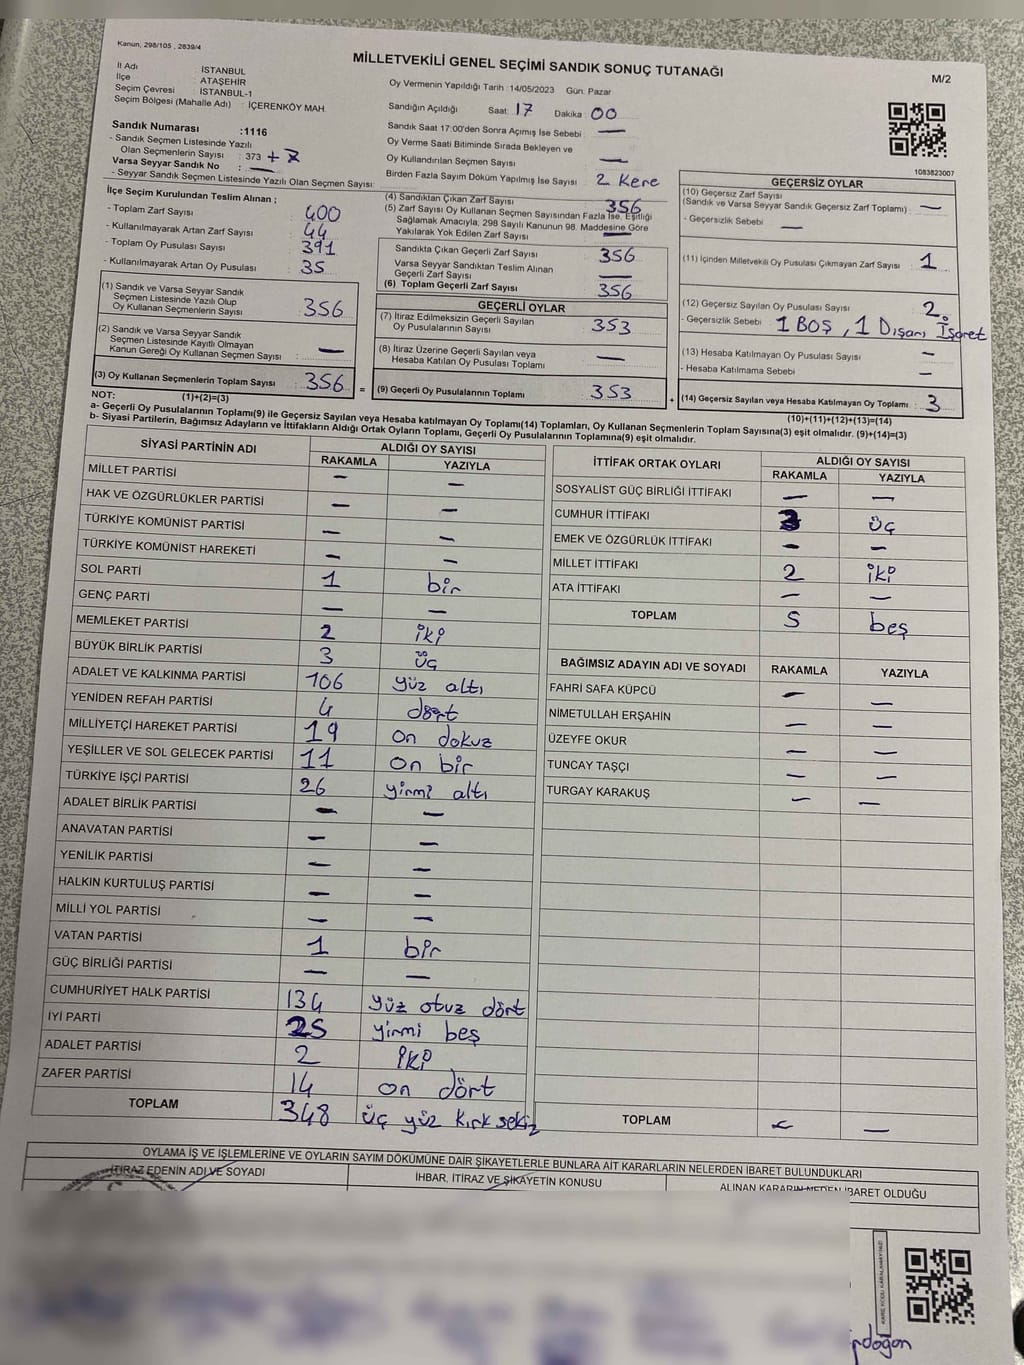 Kanun, 298/105 , 2839/4
MİLLETVEKİLİ GENEL SEÇİMİ SANDIK SONUÇ TUTANAĞI
M/2
İl Adı İSTANBUL
İlçe ATAŞEHİR
Seçim Çevresi İSTANBUL-1
Seçim Bölgesi (Mahalle Adı) : İÇERENKÖY MAH.
Oy Vermenin Yapıldığı Tarih : 14/05/2023 Gün: Pazar
Sandığın Açıldığı Saat: 17 Dakika: 00
Sandık Saat 17:00'den Sonra Açımış İse Sebebi : —
Oy Verme Saati Bitiminde Sırada Bekleyen ve
Oy Kullandırılan Seçmen Sayısı —
Birden Fazla Sayım Döküm Yapılmış İse Sayısı : 2 kere
Sandık Numarası :1116
- Sandık Seçmen Listesinde Yazılı
Olan Seçmenlerin Sayısı : 373 + 7
Varsa Seyyar Sandık No : —
- Seyyar Sandık Seçmen Listesinde Yazılı Olan Seçmen Sayısı:
1083823007
İlçe Seçim Kurulundan Teslim Alınan ;
- Toplam Zarf Sayısı : 400
- Kullanılmayarak Artan Zarf Sayısı : 44
- Toplam Oy Pusulası Sayısı : 391
- Kullanılmayarak Artan Oy Pusulası : 35
(1) Sandık ve Varsa Seyyar Sandık
Seçmen Listesinde Yazılı Olup
Oy Kullanan Seçmenlerin Sayısı : 356
(2) Sandık ve Varsa Seyyar Sandık
Seçmen Listesinde Kayıtlı Olmayan
Kanun Gereği Oy Kullanan Seçmen Sayısı : —
(3) Oy Kullanan Seçmenlerin Toplam Sayısı : 356 =
(4) Sandıktan Çıkan Zarf Sayısı 356
(5) Zarf Sayısı Oy Kullanan Seçmen Sayısından Fazla İse, Eşitliği
Sağlamak Amacıyla, 298 Sayılı Kanunun 98. Maddesine Göre
Yakılarak Yok Edilen Zarf Sayısı —
Sandıkta Çıkan Geçerli Zarf Sayısı : 356
Varsa Seyyar Sandıktan Teslim Alınan
Geçerli Zarf Sayısı : —
(6) Toplam Geçerli Zarf Sayısı : 356
GEÇERLİ OYLAR
(7) İtiraz Edilmeksizin Geçerli Sayılan
Oy Pusulalarının Sayısı : 353
(8) İtiraz Üzerine Geçerli Sayılan veya
Hesaba Katılan Oy Pusulaları Toplamı : —
(9) Geçerli Oy Pusulalarının Toplamı : 353 +
GEÇERSİZ OYLAR
(10) Geçersiz Zarf Sayısı
(Sandık ve Varsa Seyyar Sandık Geçersiz Zarf Toplamı) : —
- Geçersizlik Sebebi : —
(11) İçinden Milletvekili Oy Pusulası Çıkmayan Zarf Sayısı : 1
(12) Geçersiz Sayılan Oy Pusulası Sayısı : 2
- Geçersizlik Sebebi : 1 BOŞ , 1 Dışarı İşaret
(13) Hesaba Katılmayan Oy Pusulası Sayısı : —
- Hesaba Katılmama Sebebi : —
(14) Geçersiz Sayılan veya Hesaba Katılmayan Oy Toplamı : 3
NOT: (1)+(2)=(3) (10)+(11)+(12)+(13)=(14)
a- Geçerli Oy Pusulalarının Toplamı(9) ile Geçersiz Sayılan veya Hesaba katılmayan Oy Toplamı(14) Toplamları, Oy Kullanan Seçmenlerin Toplam Sayısına(3) eşit olmalıdır. (9)+(14)=(3)
b- Siyasi Partilerin, Bağımsız Adayların ve İttifakların Aldığı Ortak Oyların Toplamı, Geçerli Oy Pusulalarının Toplamına(9) eşit olmalıdır.
SİYASİ PARTİNİN ADI ALDIĞI OY SAYISI
RAKAMLA YAZIYLA
MİLLET PARTİSİ — —
HAK VE ÖZGÜRLÜKLER PARTİSİ — —
TÜRKİYE KOMÜNİST PARTİSİ — —
TÜRKİYE KOMÜNİST HAREKETİ — —
SOL PARTİ 1 bir
GENÇ PARTİ — —
MEMLEKET PARTİSİ 2 iki
BÜYÜK BİRLİK PARTİSİ 3 üç
ADALET VE KALKINMA PARTİSİ 106 yüz altı
YENİDEN REFAH PARTİSİ 4 dört
MİLLİYETÇİ HAREKET PARTİSİ 19 on dokuz
YEŞİLLER VE SOL GELECEK PARTİSİ 11 on bir
TÜRKİYE İŞÇİ PARTİSİ 26 yirmi altı
ADALET BİRLİK PARTİSİ — —
ANAVATAN PARTİSİ — —
YENİLİK PARTİSİ — —
HALKIN KURTULUŞ PARTİSİ — —
MİLLİ YOL PARTİSİ — —
VATAN PARTİSİ 1 bir
GÜÇ BİRLİĞİ PARTİSİ — —
CUMHURİYET HALK PARTİSİ 134 yüz otuz dört
İYİ PARTİ 25 yirmi beş
ADALET PARTİSİ 2 iki
ZAFER PARTİSİ 14 on dört
TOPLAM 348 üç yüz kırk sekiz
İTTİFAK ORTAK OYLARI ALDIĞI OY SAYISI
RAKAMLA YAZIYLA
SOSYALİST GÜÇ BİRLİĞİ İTTİFAKI — —
CUMHUR İTTİFAKI 3 üç
EMEK VE ÖZGÜRLÜK İTTİFAKI — —
MİLLET İTTİFAKI 2 iki
ATA İTTİFAKI — —
TOPLAM 5 beş
BAĞIMSIZ ADAYIN ADI VE SOYADI RAKAMLA YAZIYLA
FAHRİ SAFA KÜPCÜ — —
NİMETULLAH ERŞAHİN — —
ÜZEYFE OKUR — —
TUNCAY TAŞÇI — —
TURGAY KARAKUŞ — —
TOPLAM — —
OYLAMA İŞ VE İŞLEMLERİNE VE OYLARIN SAYIM DÖKÜMÜNE DAİR ŞİKAYETLERLE BUNLARA AİT KARARLARIN NELERDEN İBARET BULUNDUKLARI
İTİRAZ EDENİN ADI VE SOYADI İHBAR, İTİRAZ VE ŞİKAYETİN KONUSU ALINAN KARARIN NEDEN İBARET OLDUĞU